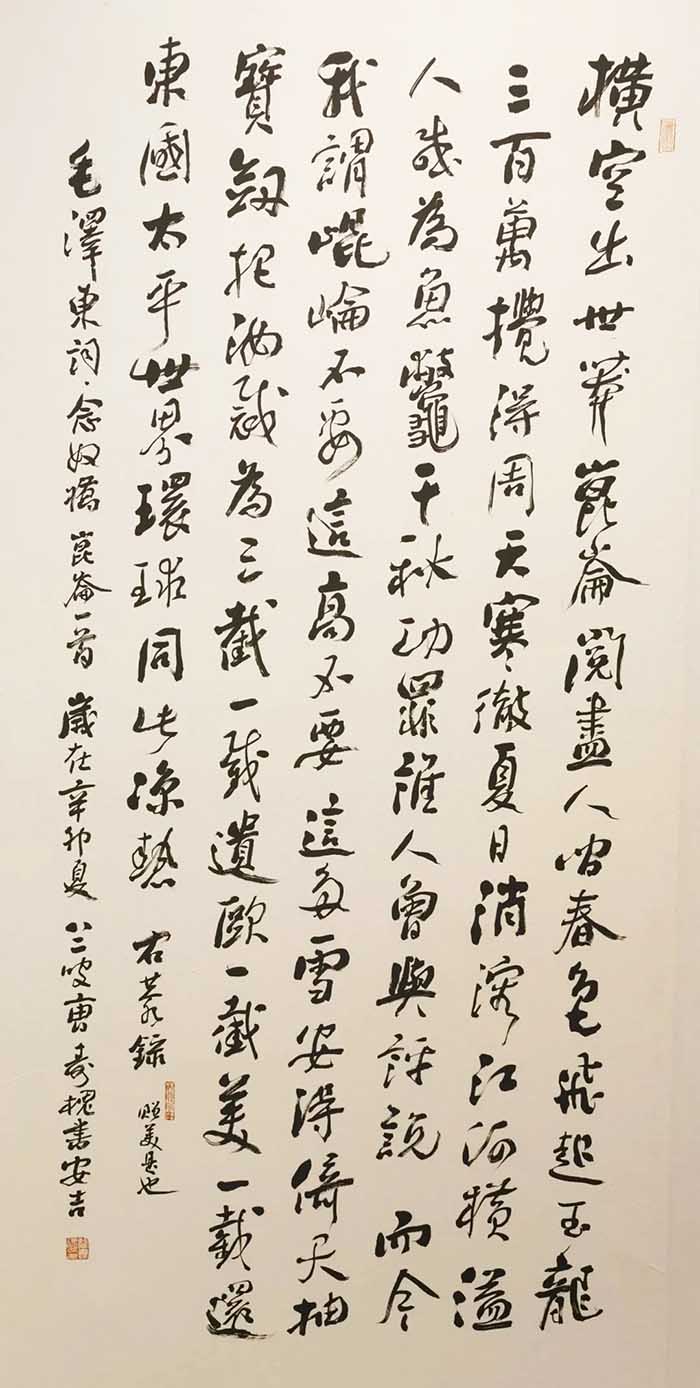 橫空出世莽崑崙閱盡人间春色飛起玉龍
三百萬攪得周天寒徹夏日消溶江河橫溢
人或為魚鼈千秋功罪誰人曾與評説 而今
我謂崐崘不要這高不要這多雪安得倚天抽
寶劔把汝裁為三截一截遺歐一截美一截還
東國太平世界環球同此涼熱 右恭錄
毛澤東詞·念奴嬌 崑崙一首 歲在辛卯夏 八二叟壽槐書安吉